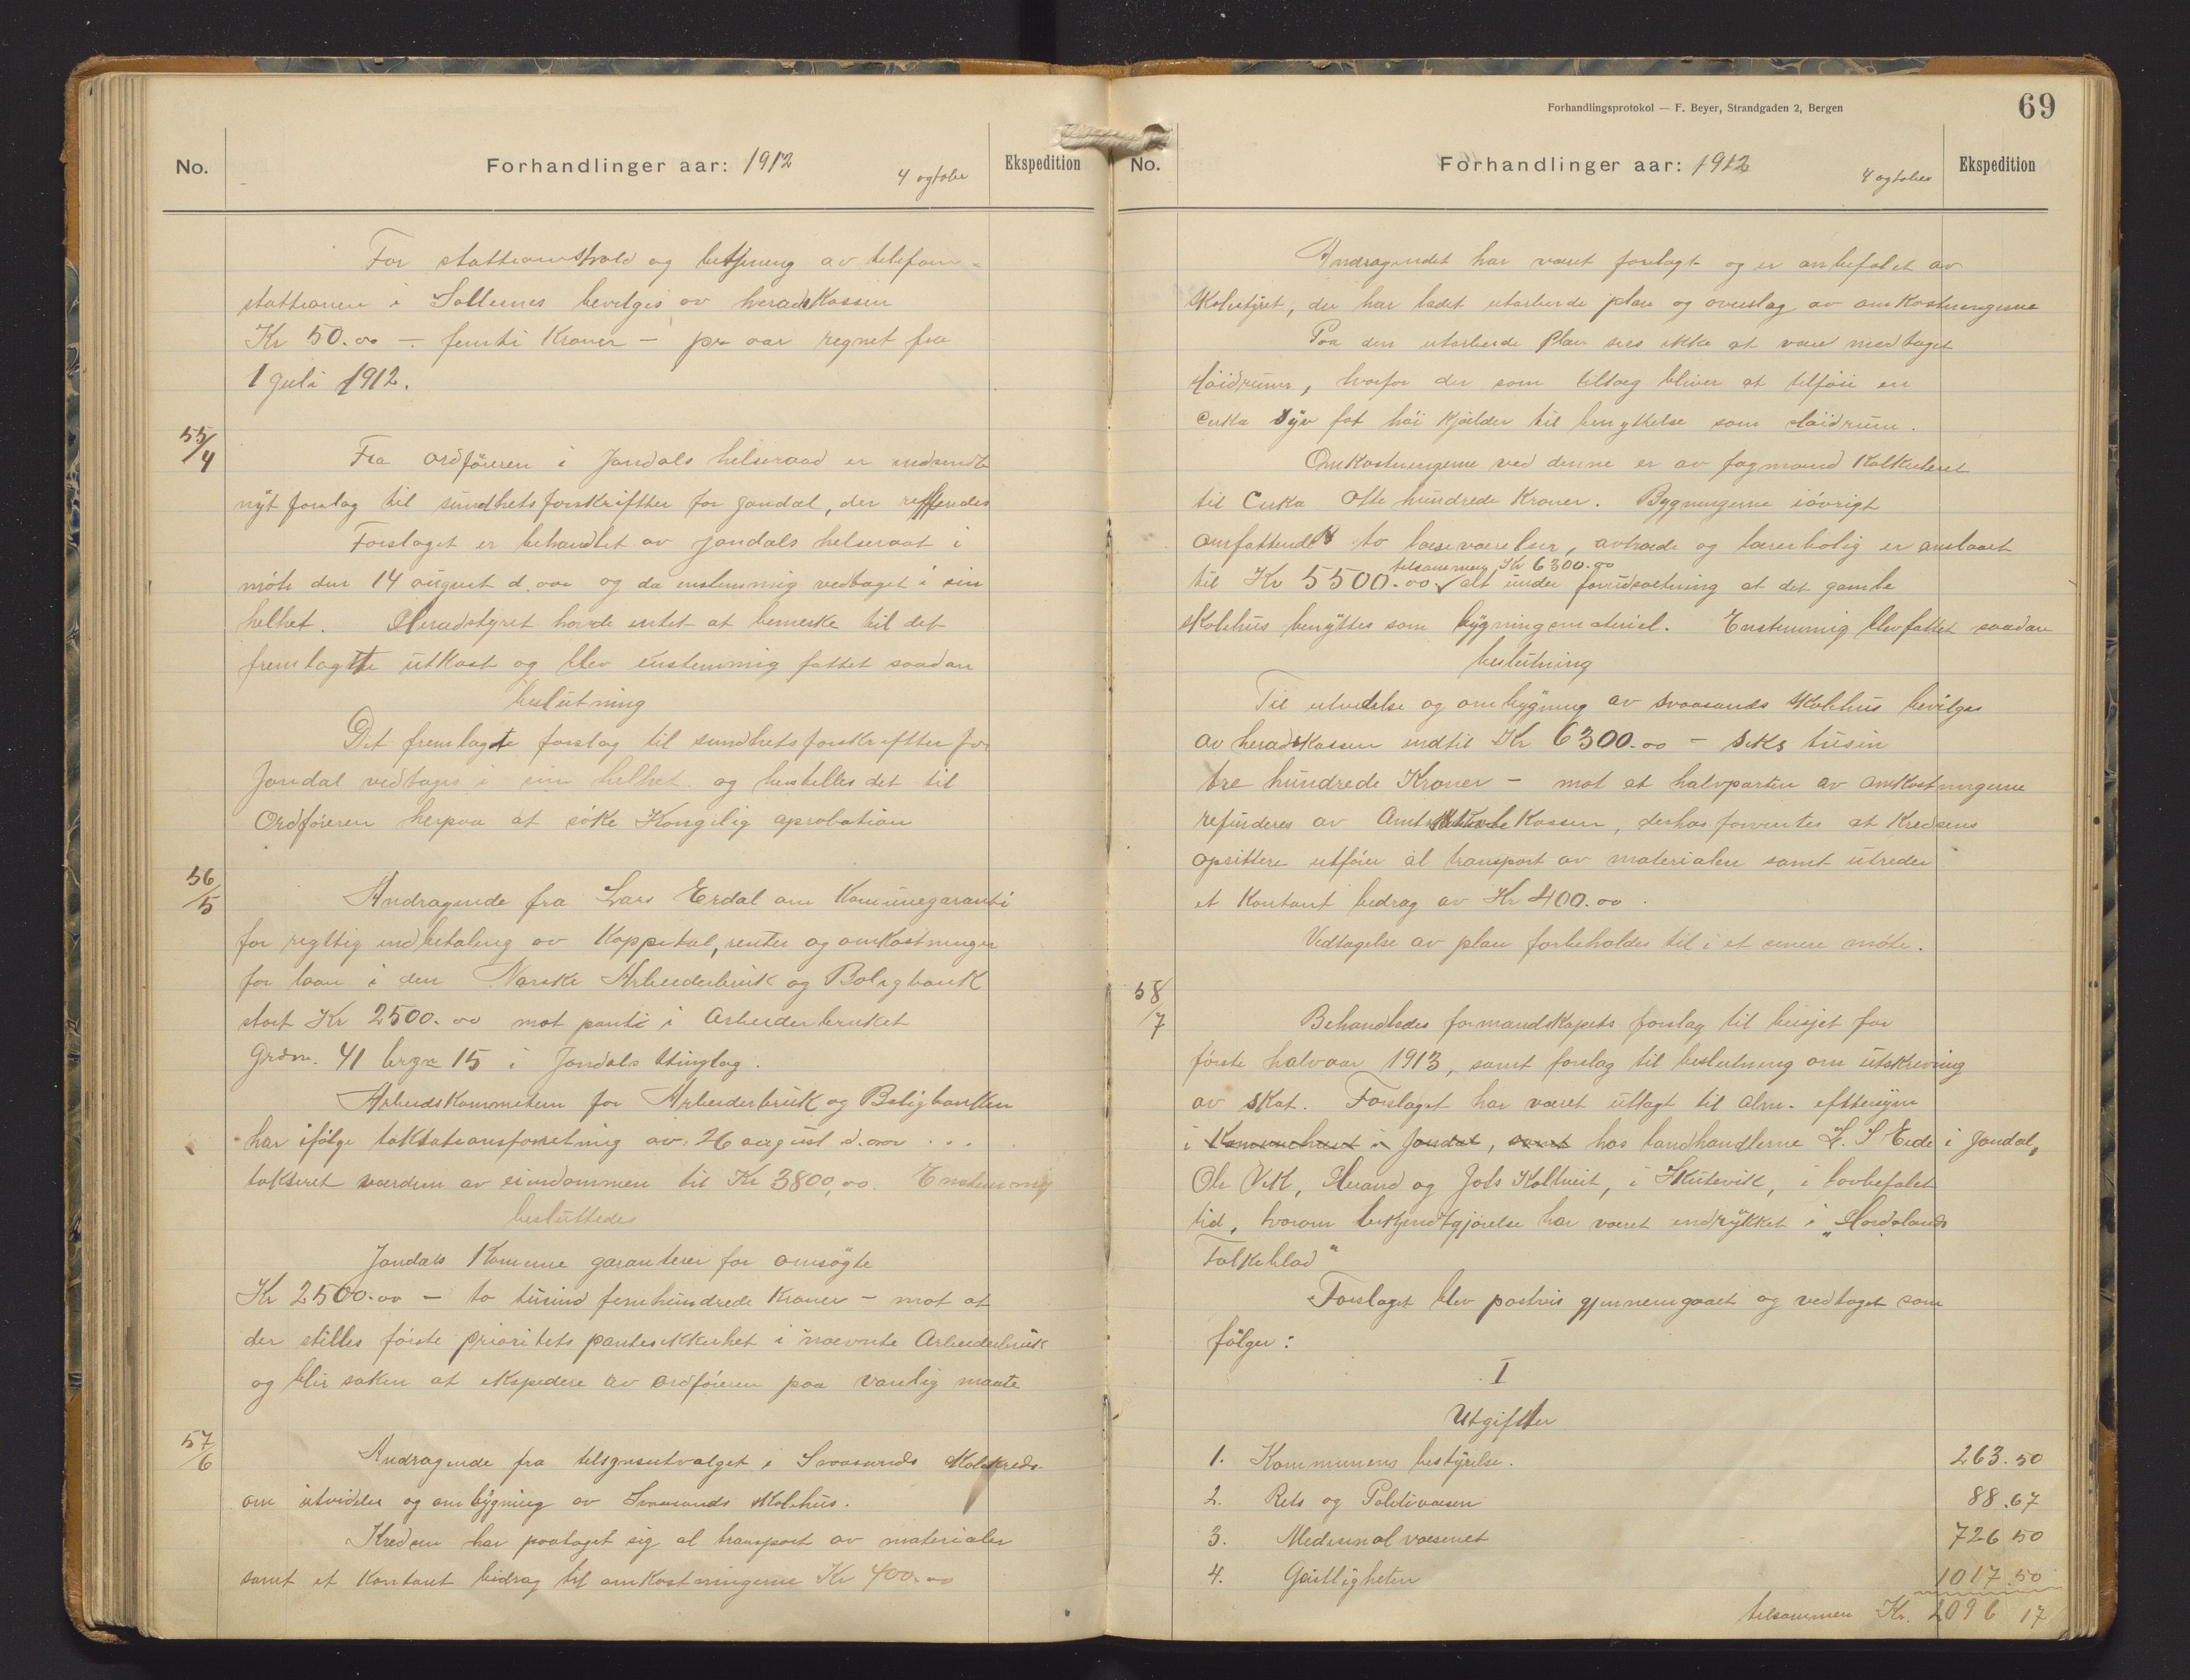 No.
Forhandlinger aar: 1912
4 ogtober
Ekspedition
For stattionshold og betjening av telefon-
stattionen i Sollesnes bevilges av heradskassen
Kr 50.00 — femti kroner — pr aar regnet fra
1 juli 1912.
55/4
Fra ordföreren i Jondals helseraad er indsendt
nyt forslag til sundhetsforskrifter for Jondal, der
Forslaget er behandlet av Jondals helseraat i
möte den 14 august d. aar og da enstemmig vedtaget i sin
helhet. Heradstyret havde intet at bemerke til det
fremlagte utkast og blev enstemmig fattet saadan
beslutning
Det fremlagte forslag til sundhetsforskrifter for
Jondal vedtages i sin helhet og henstilles det til
Ordföreren herpaa at söke Kongelig aprobation
56/5
Andragende fra Lars Erdal om Komunegaranti
for regltig indbetaling av Kappital, renter og omkostninger
for laan i den Norske Arbeiderbruk og Boligbank
stort Kr 2500.00 mot panti i Arbeiderbruket
Grdn. 41 brgn 15 i Jondals tinglag.
Arbeidskommeteen for Arbeiderbruk og Boligbanken
har ifölge takstationsforretning av 26 august d. aar . . .
takseret værdien av eiendommen til Kr 3800,00. Enstemmig
besluttedes
Jondals Komune garanterer for omsögte
Kr 2500.00 — to tusind femhundrede kroner — mot at
der stilles förste prioritets pantesikkerhet i nævnte Arbeiderbruk
og blir saken at ekspedere av ordföreren paa vanlig maate
57/6
Andragende fra tilsynsutvalget i Svaasands skolekreds
om utvidelse og ombygning av Svaasands skolehus.
Kredsen har paataget sig al transport av materialer
samt et kontant bidrag til omkostningerne Kr 400.00
Forhandlingsprotokol — F. Beyer, Strandgaden 2, Bergen
69
No.
Forhandlinger aar: 1912
4 ogtober
Ekspedition
Andragendet har været forelagt og er anbefalet av
skolestyret, der har ladet utarbeide plan og overslag av omkostningerne
Paa den utarbeide plan sees ikke at være medtaget
slöidrum, hvorfor der som tillæg bliver at tilföie en
cirka syv fot höi kjælder til benyttelse som slöidrum.
Omkostningerne ved denne er av fagmand kalkuleret
til Cirka Otte hundrede kroner. Bygningerne iövrigt
omfattende to læseværelser, avtræde og lærerbolig er anslaaet
tilsammen Kr 6300.00
til Kr 5500.00 alt under forudsætning at det gamle
skolehus benyttes som bygningsmateriel. Enstemmig blev fattet saadan
beslutning
Til utvidelse og ombygning av Svaasands skolehus bevilges
av heradskassen indtil Kr 6300.00 — seks tusin
tre hundrede Kroner — mot at halvparten av omkostningerne
refunderes av Amtskolekassen, derhos forventes at kredsens
opsittere utförer al transport av materialer samt utreder
et kontant bedrag av Kr 400.00.
Vedtagelse av plan forbeholdes til i et senere möte.
58/7
Behandledes formandskapets forslag til busjet for
förste halvaar 1913, samt forslag til beslutning om utskrivning
av skat. Forslaget har været utlagt til alm. eftersyn
i Komunehuset i Jondal, samt hos landhandlerne L. S Eide i Jondal,
Ole Vik, Herand og Jols Koltveit, i Skutevik, i lovbefalet
tid, hvorom bekjendtgjörelse har været indrykket i „Hordalands
Folkeblad"
Forslaget blev postvis gjennemgaaet og vedtaget som
fölger:
I
Utgifter
1. Kommunens bestyrelse. 263.50
2. Rets og Politivæsen 88.67
3. Medisinalvæsenet 726 50
4. Geistligheten 1017.50
tilsammen Kr. 2096 17